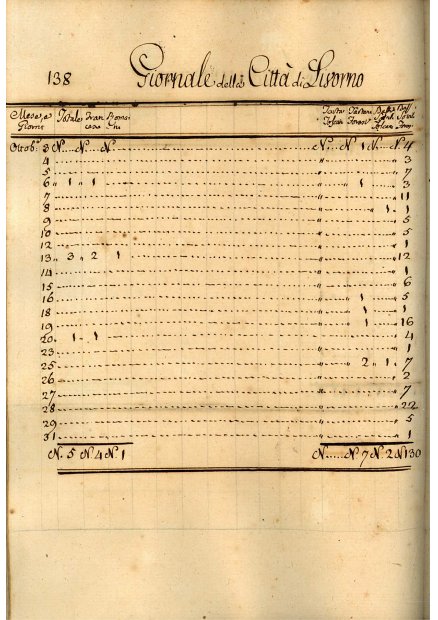 138 Giornale della Città di Livorno
Mese, e Giorni Totale Fran cese Roma ni
Ottobre 3 N. N. N. N. N. 1 N. N. 4
4 " 3
5 " 7
6 " 1 " 1 " 1 3
7 " 11
8 " " 1 " 1
9 " 5
10 " 5
12 " 1
13 " 3 " 2 1 " 12
14 " 1
15 " 6
16 " 1 5
18 " 1 1
19 " 1 16
20 " 1 1 4
23 " 1
25 " 2 " 1 " 7
26 " 2
27 " 7
28 " 22
29 " 5
31 " 1
N. 5 N. 4 N. 1 N. N. 7 N. 2 N. 130